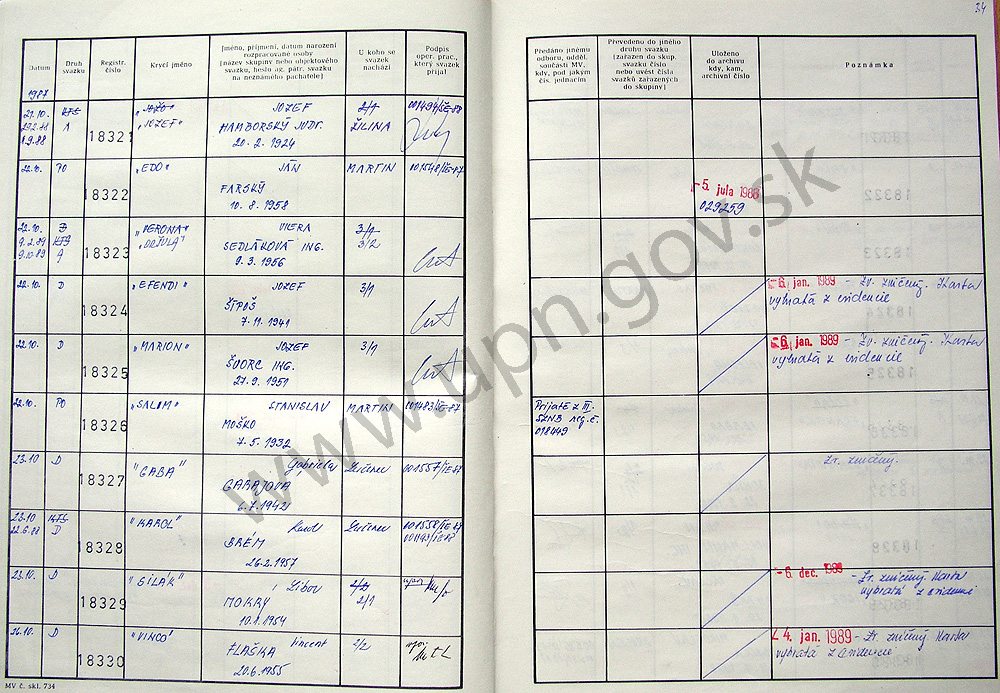 34
Datum
Druh
svazku
Registr.
číslo
Krycí jméno
Jméno, příjmení, datum narození
rozpracované osoby
(název skupiny nebo objektového
svazku, heslo ag. pátr. svazku
na neznámého pachatele)
U koho se
svazek
nachází
Podpis
oper. prac.,
který svazek
přijal
Předáno jinému
odboru, odděl.
součásti MV,
kdy, pod jakým
čís. jednacím
Převedeno do jiného
druhu svazku
(zařazen do skup.
svazku číslo
nebo uvést čísla
svazků zařazených
do skupiny)
Uloženo
do archivu
kdy, kam,
archivní číslo
Poznámka
1987
21.10.
KTS
"JOŽO"
JOZEF
2/1
001494/
1.9.88
A
18321
"JOZEF"
HAMBORSKÝ JUDr.
ŽILINA
20. 2. 1924
22.10.
PO
"EDO"
JÁN
MARTIN
001548/
18322
FARSKÝ
10. 8. 1958
-5. júla 1988
029259
22.10.
"VERONA"
VIERA
3/1
9.2.89
KTS
SEDLÁKOVÁ ING.
3/2
9.10.89
A
18323
9. 3. 1956
22.10.
D
"EFENDI"
JOZEF
3/1
18324
ŠÍPOŠ
7. 11. 1941
-6. jan. 1989 - Zv. zničený. Karta
vybratá z evidencie
22.10.
D
"MARION"
JOZEF
3/1
18325
ŠVORC ING.
27. 9. 1951
-6. jan. 1989 - Zv. zničený. Karta
vybratá z evidencie
22.10.
PO
"SALIM"
STANISLAV
MARTIN
001483/
18326
MOŠKO
7. 5. 1932
Prijaté z III.
SZNB reg. č.
018449
23.10
D
"GABA"
Gabriela
Lučenec
001557/
18327
GARAJOVÁ
6. 7. 1942
Zv. zničený.
23.10
KTS
"KAROL"
Karol
Lučenec
001558/
22.6.88
D
18328
BRÉM
26. 2. 1957
23.10.
D
"GILÁK"
Libor
2/2
18329
MOKRÝ
2/1
10. 1. 1954
-6. dec. 1989 - Zv. zničený. Karta
vybratá z evidencie
26.10.
D
"VINCO"
Vincent
2/2
18330
FLAŠKA
20. 6. 1955
4. jan. 1989 - Zv. zničený. Karta
vybratá z evidencie
MV č. skl. 734
www.upn.gov.sk